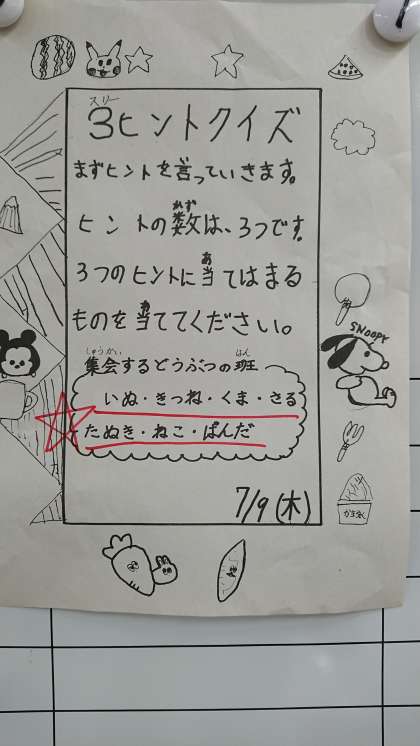 スリー
3ヒントクイズ
まずヒントを言っていきます。
かず
ヒントの数は、3つです。
あ
3つのヒントに当てはまる
あ
ものを当ててください。
しゅうかい はん
集会するどうぶつの班
いぬ・きつね・くま・さる
たぬき・ねこ・ぱんだ
7/9(木)
SNOOPY